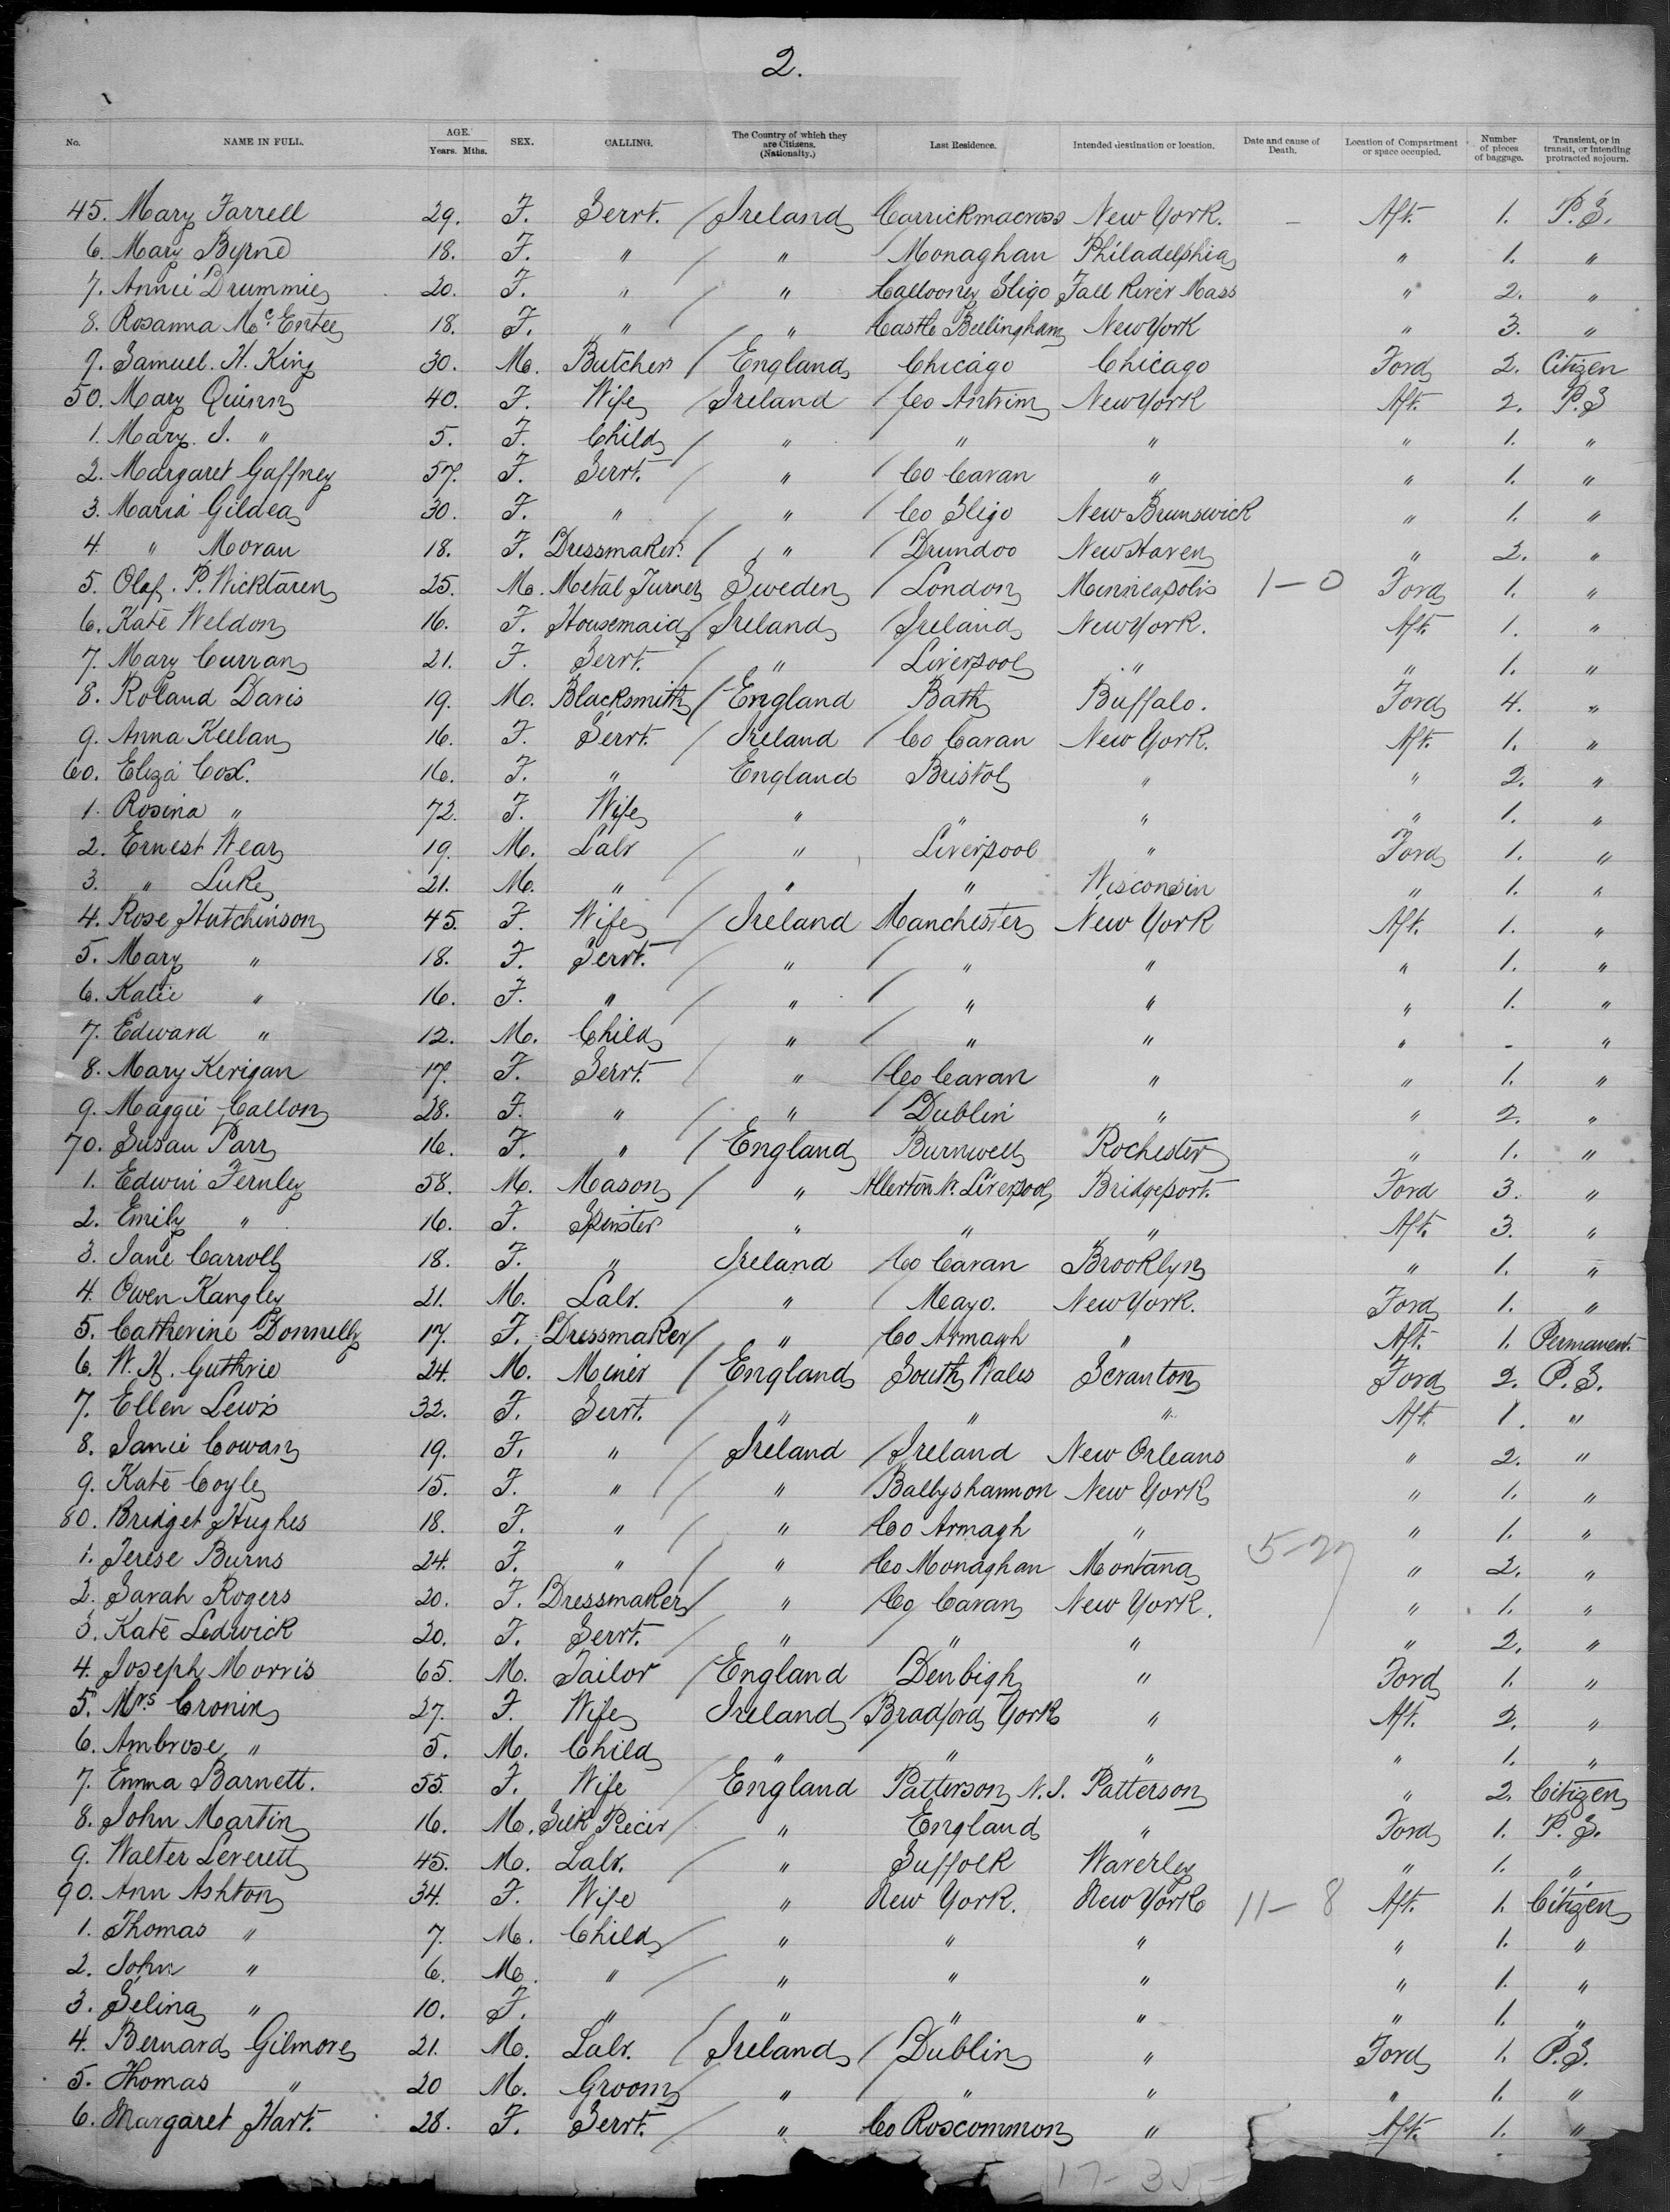 2.
No. NAME IN FULL. AGE. Years. Mths. SEX. CALLING. The Country of which they are Citizens. (Nationality.) Last Residence. Intended destination or location. Date and cause of Death. Location of Compartment or space occupied. Number of pieces of baggage. Transient, or in transit, or intending protracted sojourn.
45. Mary Farrell 29. F. Servt. Ireland Carrickmacross New York. — Aft. 1. P.S.
6. Mary Byrne 18. F. " " Monaghan Philadelphia " 1. "
7. Annie Drummie 20. F. " " Callooney Sligo Fall River Mass " 2. "
8. Rosanna McEntee 18. F. " " Castle Bellingham New York " 3. "
9. Samuel. H. King 30. M. Butcher England Chicago Chicago Ford 2. Citizen
50. Mary Quinn 40. F. Wife Ireland Co Antrim New York Aft. 2. P.S
1. Mary. J. " 5. F. Child " " " " 1. "
2. Margaret Gaffney 57. F. Servt. " Co Cavan " " 1. "
3. Maria Gildea 30. F. " " Co Sligo New Brunswick " 1. "
4. " Moran 18. F. Dressmaker. " Drundoo New Haven " 2. "
5. Olaf. P. Wicktaren 25. M. Metal Turner Sweden London Minneapolis 1-0 Ford 1. "
6. Kate Weldon 16. F. Housemaid Ireland Ireland New York. Aft. 1. "
7. Mary Curran 21. F. Servt. " Liverpool " " 1. "
8. Roland Davis 19. M. Blacksmith England Bath Buffalo. Ford 4. "
9. Anna Keelan 16. F. Servt. Ireland Co Cavan New York. Aft. 1. "
60. Eliza Cox. 16. F. " England Bristol " " 2. "
1. Rosina " 72. F. Wife " " " " 1. "
2. Ernest Wear 19. M. Labr " Liverpool " Ford 1. "
3. " Luke 21. M. " " " Wisconsin " 1. "
4. Rose Hutchinson 45. F. Wife Ireland Manchester New York Aft. 1. "
5. Mary " 18. F. Servt. " " " " 1. "
6. Katie " 16. F. " " " " " 1. "
7. Edward " 12. M. Child " " " " - "
8. Mary Kerigan 17. F. Servt. " Co Cavan " " 1. "
9. Maggie Callon 28. F. " " Dublin " " 2. "
70. Susan Parr 16. F. " England Burnwell Rochester " 1. "
1. Edwin Fernley 58. M. Mason " Allerton Nr. Liverpool Bridgeport. Ford 3. "
2. Emily " 16. F. Spinster " " " Aft. 3. "
3. Jane Carroll 18. F. " Ireland Co Cavan Brooklyn " 1. "
4. Owen Kangley 21. M. Labr. " Mayo. New York. Ford 1. "
5. Catherine Donnelly 17. F. Dressmaker " Co Armagh " Aft. 1. Permanent.
6. W. H. Guthrie 24. M. Miner England South Wales Scranton Ford 2. P.S.
7. Ellen Lewis 32. F. Servt. " " " Aft. 1. "
8. Janie Cowan 19. F. " Ireland Ireland New Orleans " 2. "
9. Kate Coyle 15. F. " " Ballyshannon New York " 1. "
80. Bridget Hughes 18. F. " " Co Armagh " " 1. "
1. Terese Burns 24. F. " " Co Monaghan Montana 5-27 " 2. "
2. Sarah Rogers 20. F. Dressmaker " Co Cavan New York. " 1. "
3. Kate Ledwick 20. F. Servt. " " " " 2. "
4. Joseph Morris 65. M. Tailor England Denbigh " Ford 1. "
5. Mrs Cronin 27. F. Wife Ireland Bradford York " Aft. 2. "
6. Ambrose " 5. M. Child " " " " 1. "
7. Emma Barnett. 55. F. Wife England Patterson, N.J. Patterson " 2. Citizen
8. John Martin 16. M. Silk Piecer " England " Ford 1. P.S.
9. Walter Leverett 45. M. Labr. " Suffolk Waverley " 1. "
90. Ann Ashton 34. F. Wife " New York. New York 11-8 Aft. 1. Citizen
1. Thomas " 7. M. Child " " " " 1. "
2. John " 6. M. " " " " " 1. "
3. Selina " 10. F. " " " " " 1. "
4. Bernard Gilmore 21. M. Labr. Ireland Dublin " Ford 1. P.S.
5. Thomas " 20 M. Groom " " " " 1. "
6. Margaret Hart. 28. F. Servt. " Co Roscommon " Aft. 1. "
17-35-